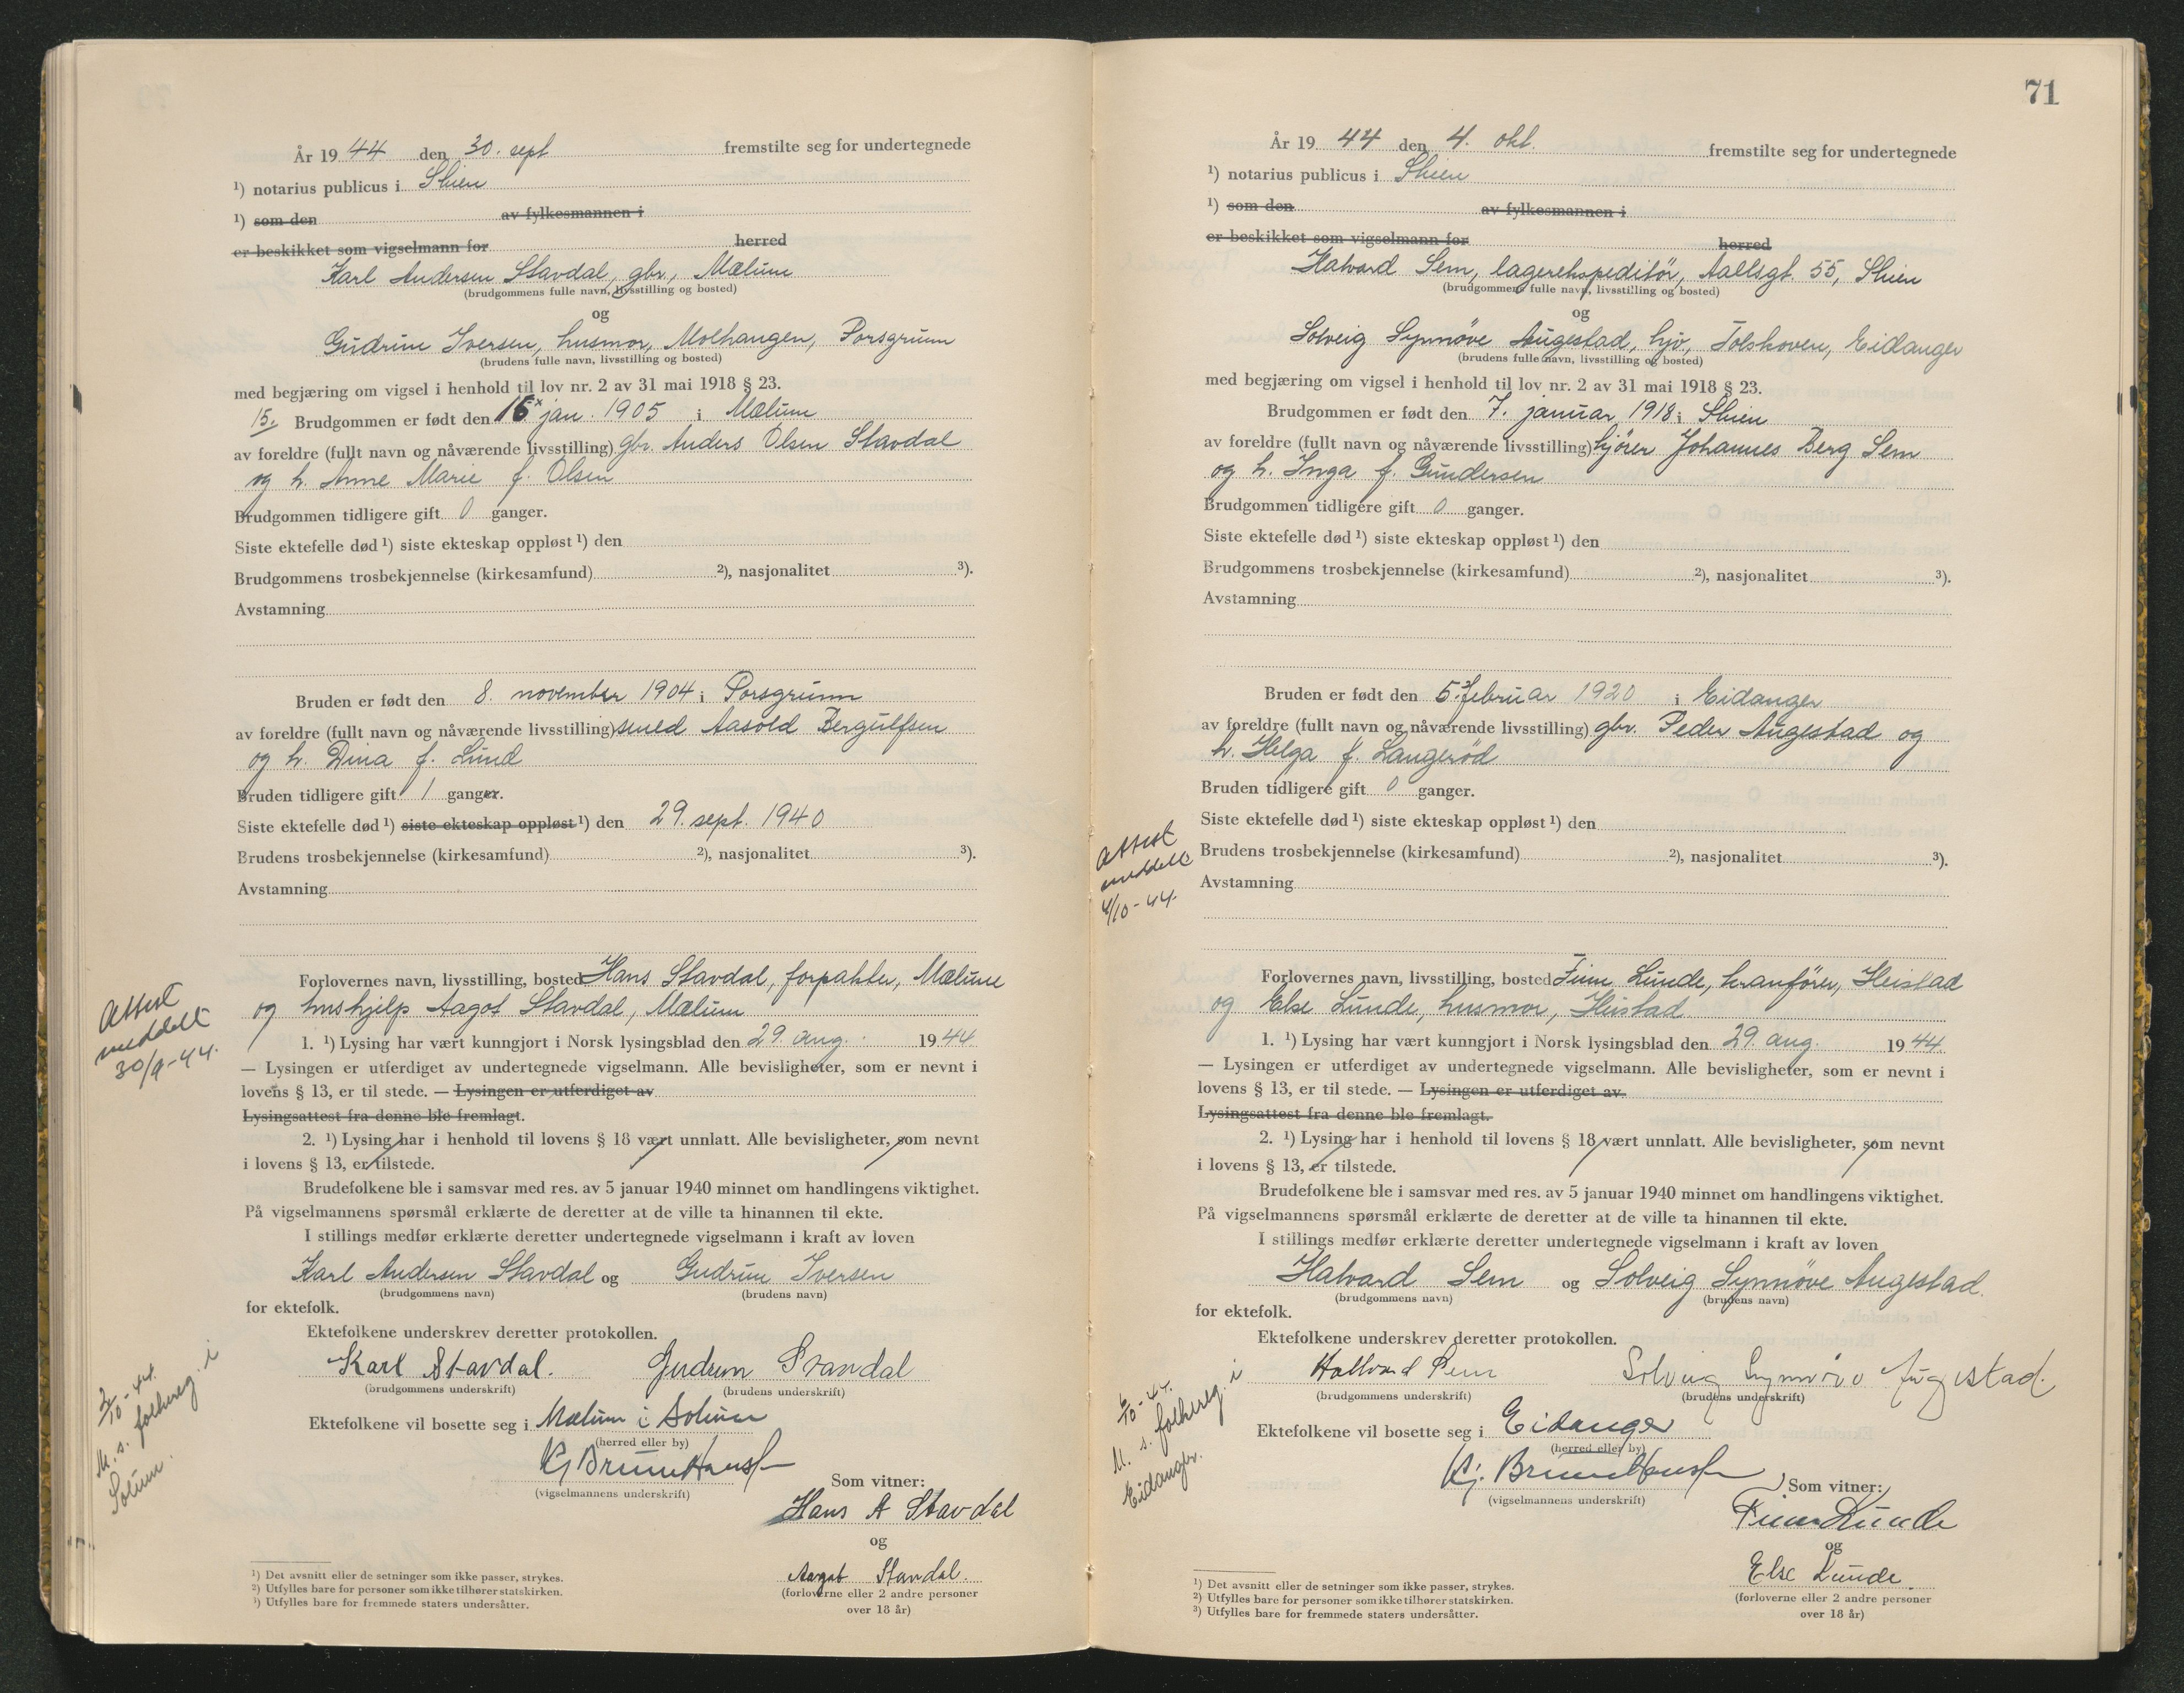 År 19 44 den 30. sept fremstilte seg for undertegnede
¹) notarius publicus i Skien
¹) som den av fylkesmannen i
er beskikket som vigselmann for herred
Karl Andersen Stavdal, gbr., Mælum
(brudgommens fulle navn, livsstilling og bosted)
og
Gudrun Iversen, husmor, Molhaugen, Porsgrunn
(brudens fulle navn, livsstilling og bosted)
med begjæring om vigsel i henhold til lov nr. 2 av 31 mai 1918 § 23.
15. Brudgommen er født den 15 x jan. 1905 i Mælum
av foreldre (fullt navn og nåværende livsstilling) gbr. Anders Olsen Stavdal
og h. Anne Marie f. Olsen
Brudgommen tidligere gift 0 ganger.
Siste ektefelle død ¹) siste ekteskap oppløst ¹) den
Brudgommens trosbekjennelse (kirkesamfund) ²), nasjonalitet ³).
Avstamning
Bruden er født den 8. november 1904 i Porsgrunn
av foreldre (fullt navn og nåværende livsstilling) smed Aasold Bergulfsen
og h. Dina f. Lund
Bruden tidligere gift 1 ganger.
Siste ektefelle død ¹) siste ekteskap oppløst ¹) den 29. sept. 1940
Brudens trosbekjennelse (kirkesamfund) ²), nasjonalitet ³).
Avstamning
Forlovernes navn, livsstilling, bosted Hans Stavdal, forpakter, Mælum
og hushjelp Aagot Stavdal, Mælum
Attest
meddelt
30/9-44.
1. ¹) Lysing har vært kunngjort i Norsk lysingsblad den 29. aug. 19 44
— Lysingen er utferdiget av undertegnede vigselmann. Alle bevisligheter, som er nevnt i
lovens § 13, er til stede. — Lysingen er utferdiget av
Lysingsattest fra denne ble fremlagt.
2. ¹) Lysing har i henhold til lovens § 18 vært unnlatt. Alle bevisligheter, som nevnt
i lovens § 13, er tilstede.
Brudefolkene ble i samsvar med res. av 5 januar 1940 minnet om handlingens viktighet.
På vigselmannens spørsmål erklærte de deretter at de ville ta hinannen til ekte.
I stillings medfør erklærte deretter undertegnede vigselmann i kraft av loven
Karl Andersen Stavdal og Gudrun Iversen
(brudgommens navn) (brudens navn)
for ektefolk.
Ektefolkene underskrev deretter protokollen.
Karl Stavdal. Gudrun Stavdal
(brudgommens underskrift) (brudens underskrift)
Ektefolkene vil bosette seg i Mælum i Solum
(herred eller by)
2/10-44.
M. s. folkereg. i
Solum.
(vigselmannens underskrift)
Som vitner:
Hans A Stavdal
og
Aagot Stavdal.
(forloverne eller 2 andre personer
over 18 år)
¹) Det avsnitt eller de setninger som ikke passer, strykes.
²) Utfylles bare for personer som ikke tilhører statskirken.
³) Utfylles bare for fremmede staters undersåtter.
71
År 19 44 den 4. okt. fremstilte seg for undertegnede
¹) notarius publicus i Skien
¹) som den av fylkesmannen i
er beskikket som vigselmann for herred
Halvard Sem, lagerekspeditør, Aallsgt. 55, Skien
(brudgommens fulle navn, livsstilling og bosted)
og
Solveig Synnøve Augestad, hjv., Tolskoven, Eidanger
(brudens fulle navn, livsstilling og bosted)
med begjæring om vigsel i henhold til lov nr. 2 av 31 mai 1918 § 23.
Brudgommen er født den 7. januar 1918 i Skien
av foreldre (fullt navn og nåværende livsstilling) kjører Johannes Berg Sem
og h. Inga f. Gundersen
Brudgommen tidligere gift 0 ganger.
Siste ektefelle død ¹) siste ekteskap oppløst ¹) den
Brudgommens trosbekjennelse (kirkesamfund) ²), nasjonalitet ³).
Avstamning
Bruden er født den 5. februar 1920 i Eidanger
av foreldre (fullt navn og nåværende livsstilling) gbr. Peder Augestad og
h. Helga f. Langerød
Bruden tidligere gift 0 ganger.
Siste ektefelle død ¹) siste ekteskap oppløst ¹) den
Brudens trosbekjennelse (kirkesamfund) ²), nasjonalitet ³).
Avstamning
Attest
meddelt
4/10-44.
Forlovernes navn, livsstilling, bosted Finn Lunde, kranfører, Heistad
og Else Lunde, husmor, Heistad
1. ¹) Lysing har vært kunngjort i Norsk lysingsblad den 29. aug. 19 44.
— Lysingen er utferdiget av undertegnede vigselmann. Alle bevisligheter, som er nevnt i
lovens § 13, er til stede. — Lysingen er utferdiget av
Lysingsattest fra denne ble fremlagt.
2. ¹) Lysing har i henhold til lovens § 18 vært unnlatt. Alle bevisligheter, som nevnt
i lovens § 13, er tilstede.
Brudefolkene ble i samsvar med res. av 5 januar 1940 minnet om handlingens viktighet.
På vigselmannens spørsmål erklærte de deretter at de ville ta hinannen til ekte.
I stillings medfør erklærte deretter undertegnede vigselmann i kraft av loven
Halvard Sem og Solveig Synnøve Augestad.
(brudgommens navn) (brudens navn)
for ektefolk.
Ektefolkene underskrev deretter protokollen.
Hallvard Sem Solveig Synnøve Augestad.
(brudgommens underskrift) (brudens underskrift)
Ektefolkene vil bosette seg i Eidanger
(herred eller by)
6/10-44.
M. s. folkereg. i
Eidanger.
(vigselmannens underskrift)
Som vitner:
Finn Lunde
og
Else Lunde.
(forloverne eller 2 andre personer
over 18 år)
¹) Det avsnitt eller de setninger som ikke passer, strykes.
²) Utfylles bare for personer som ikke tilhører statskirken.
³) Utfylles bare for fremmede staters undersåtter.